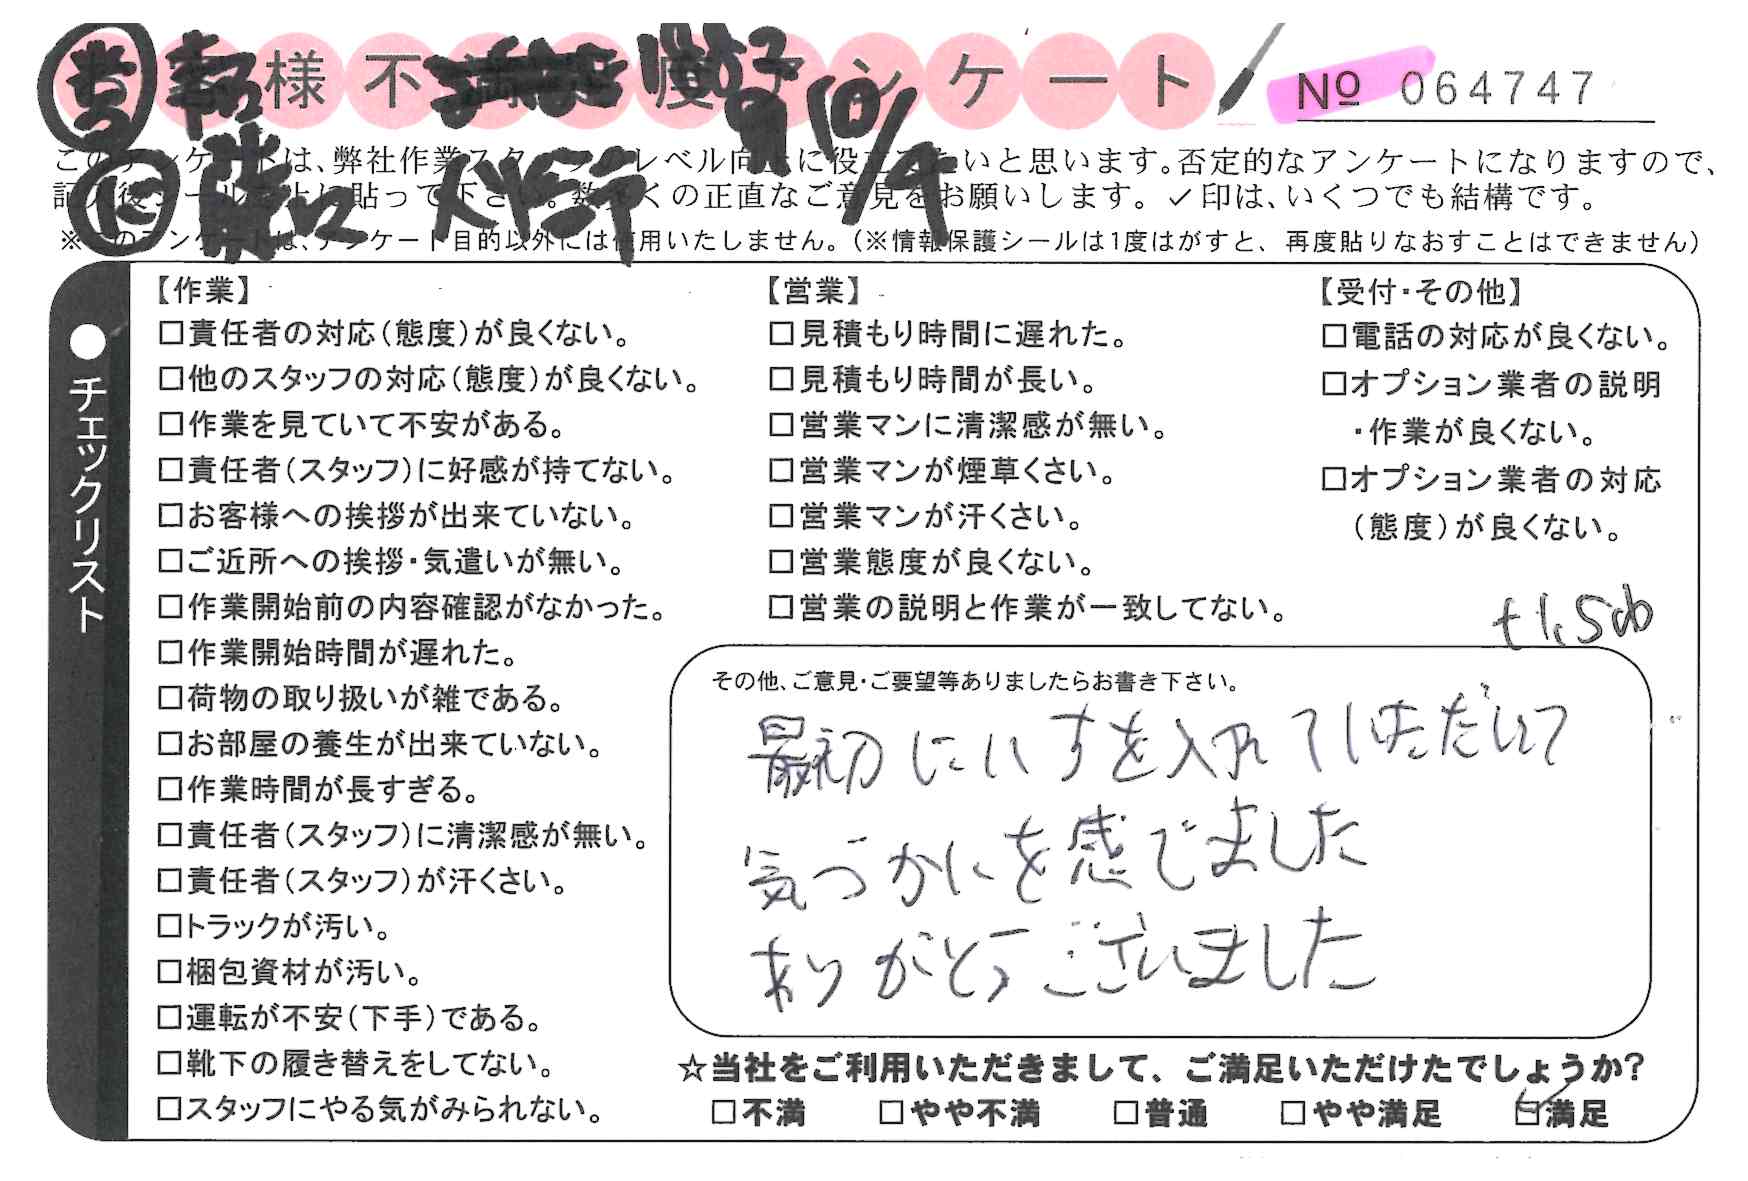 お客様不満足度アンケート
№ 064747
このアンケートは、弊社作業スタッフのレベル向上に役立てたいと思います。否定的なアンケートになりますので、
記入後シールを上に貼って下さい。数多くの正直なご意見をお願いします。✓印は、いくつでも結構です。
※このアンケートは、アンケート目的以外には使用いたしません。(※情報保護シールは1度はがすと、再度貼りなおすことはできません)
●チェックリスト
【作業】
□責任者の対応(態度)が良くない。
□他のスタッフの対応(態度)が良くない。
□作業を見ていて不安がある。
□責任者(スタッフ)に好感が持てない。
□お客様への挨拶が出来ていない。
□ご近所への挨拶・気遣いが無い。
□作業開始前の内容確認がなかった。
□作業開始時間が遅れた。
□荷物の取り扱いが雑である。
□お部屋の養生が出来ていない。
□作業時間が長すぎる。
□責任者(スタッフ)に清潔感が無い。
□責任者(スタッフ)が汗くさい。
□トラックが汚い。
□梱包資材が汚い。
□運転が不安(下手)である。
□靴下の履き替えをしてない。
□スタッフにやる気がみられない。
【営業】
□見積もり時間に遅れた。
□見積もり時間が長い。
□営業マンに清潔感が無い。
□営業マンが煙草くさい。
□営業マンが汗くさい。
□営業態度が良くない。
□営業の説明と作業が一致してない。
【受付・その他】
□電話の対応が良くない。
□オプション業者の説明
・作業が良くない。
□オプション業者の対応
(態度)が良くない。
その他、ご意見・ご要望等ありましたらお書き下さい。
最初にいすを入れていただいて
気づかいを感でました
ありがとうございました
☆当社をご利用いただきまして、ご満足いただけたでしょうか?
□不満 □やや不満 □普通 □やや満足 ☑満足